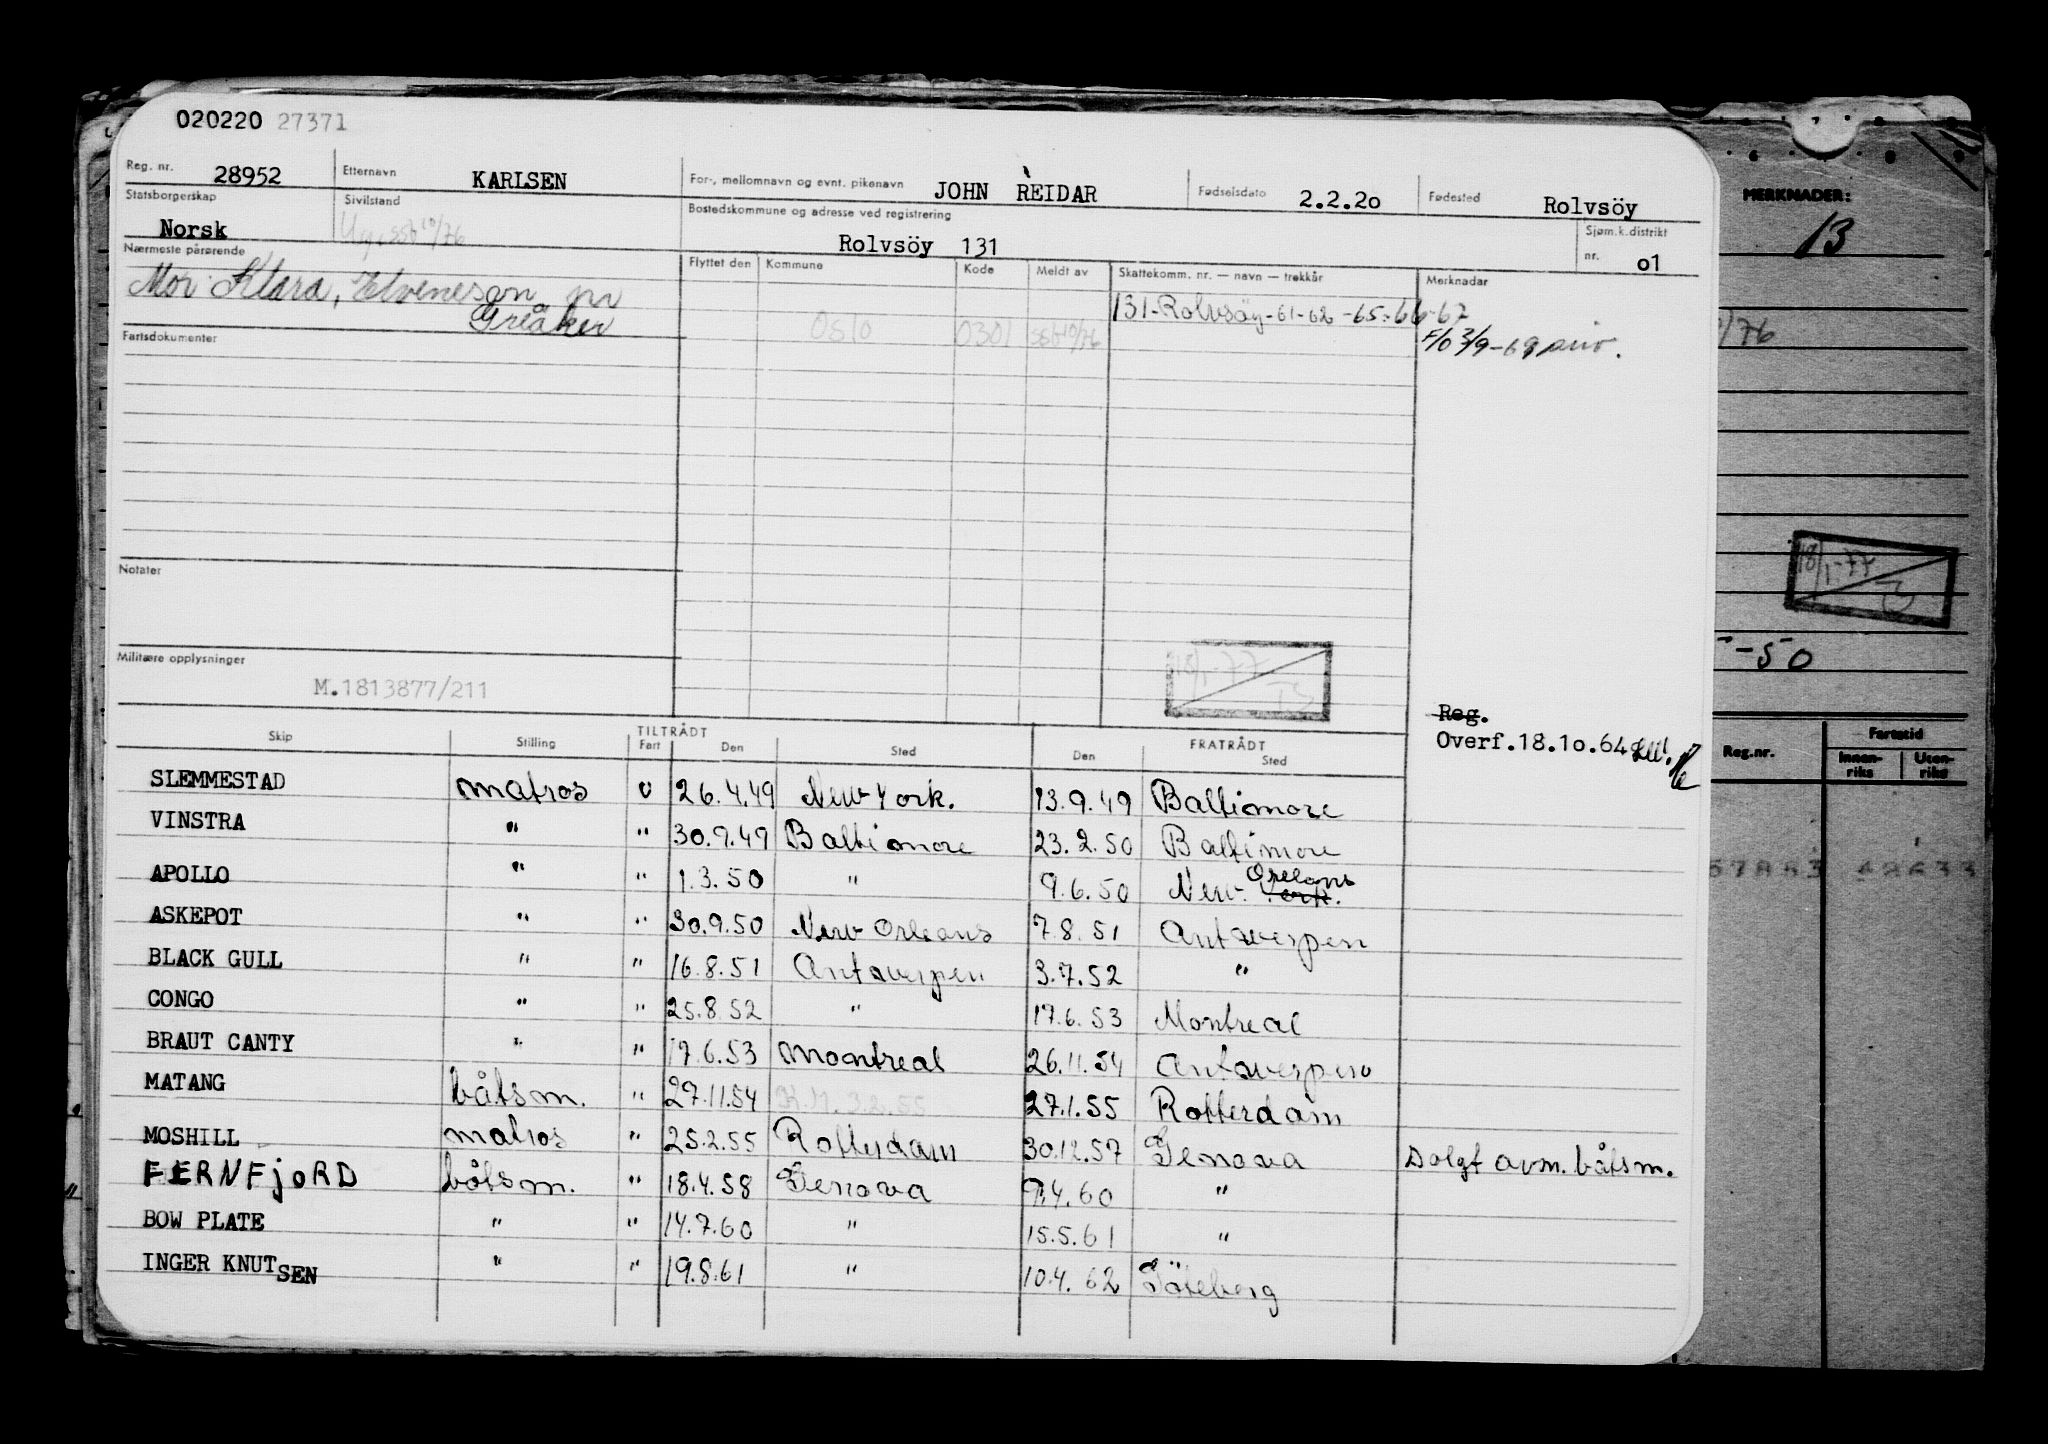 020220 27371
Reg. nr. 28952 Etternavn KARLSEN For-, mellomnavn og evnt. pikenavn JOHN REIDAR Fødselsdato 2.2.20 Fødested Rolvsöy
Statsborgerskap Norsk Sivilstand Bostedskommune og adresse ved registrering Rolvsöy 131 Sjøm.k.distrikt nr. 01
Nærmeste pårørende Flyttet den Kommune Kode Meldt av Skattekomm. nr. — navn — trekkår Merknader
Mor Klara,
Greåker
131-Rolvsöy-61-62-65-66-67
Oslo 0301 10/76
F/O 3/9-69
Fartsdokumenter
Notater
Militære opplysninger
M.1813877/211
18/1-77
Reg.
Overf.18.10.64
Skip Stilling TILTRÅDT Fart Den Sted FRATRÅDT Den Sted
SLEMMESTAD matros U 26.4.49 New York. 13.9.49 Baltimore
VINSTRA " " 30.9.49 Baltimore 23.2.50 Baltimore
APOLLO " " 1.3.50 " 9.6.50 New York. Orleans
ASKEPOT " " 30.9.50 New Orleans 7.8.51 Antwerpen
BLACK GULL " " 16.8.51 Antwerpen 3.7.52 "
CONGO " " 25.8.52 " 17.6.53 Montreal
BRAUT CANTY " " 17.6.53 Montreal 26.11.54 Antwerpen
MATANG båtsm. " 27.11.54 27.1.55 Rotterdam
MOSHILL matros " 25.2.55 Rotterdam 30.12.57 Genova Solgt avm. båtsm.
FERNFJORD båtsm. " 18.4.58 Genova 9.4.60 "
BOW PLATE " " 14.7.60 " 15.5.61 "
INGER KNUTSEN " " 19.8.61 " 10.4.62 Göteberg
MERKNADER:
13
/76
18/1-77
-50
Reg.nr. Fartstid
Innenriks Utenriks